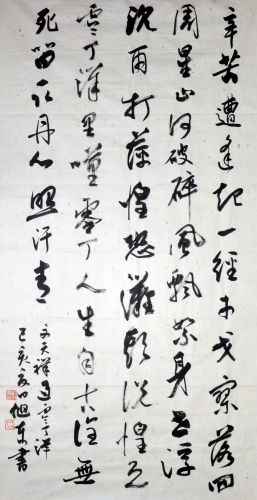 辛苦遭逢起一經干戈寥落四
周星山河破碎風飄絮身世浮
沉雨打萍惶恐灘頭說惶恐
零丁洋里嘆零丁人生自古誰無
死留取丹心照汗青
文天祥過零丁洋
己亥夏日旭东書